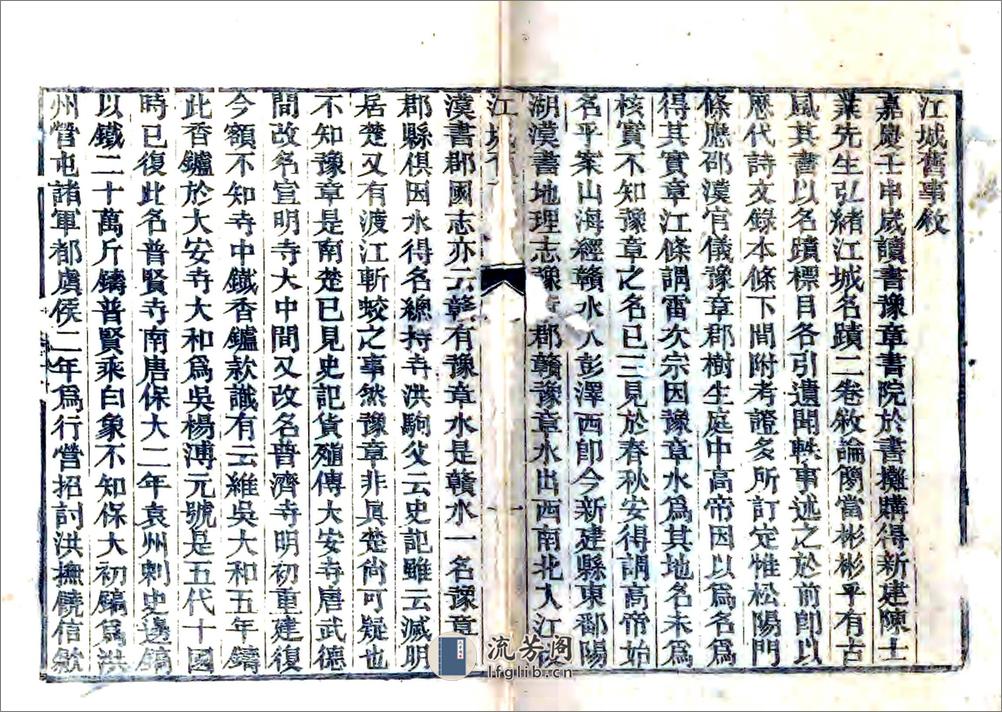 江城舊事敘
嘉慶壬申歲讀書豫章書院於書攤購得新建陳士
業先生弘緒江城名蹟二卷敘論閎當彬彬乎有古
風其書以名蹟標目各引遺聞軼事述之於前卽以
歷代詩文錄本條下間附考證多所訂定惟松陽門
條應邵漢官儀豫章郡樹生庭中高帝因以爲名爲
得其實章江條謂雷次宗因豫章水爲其地名未爲
核實不知豫章之名已三見於春秋安得謂高帝始
名乎案山海經贛水入彭澤西卽今新建縣東鄱陽
湖漢書地理志豫郡贛豫章水出西南北入江
江城
漢書郡國志亦云贛有豫章水是贛水一名豫章
郡縣俱因水得名總持寺洪駒父云史記雖云滅明
居楚又有渡江斬蛟之事然豫章非眞楚尙可疑也
不知豫章是南楚已見史記貨殖傳大安寺唐武德
間改名宣明寺大中間又改名普濟寺明初重建復
今額不知寺中鐵香鑪款識有云維吳大和五年鑄
此香鑪於大安寺大和爲吳楊溥元號是五代十國
時已復此名普賢寺南唐保大二年袁州刺史邊鎬
以鐵二十萬斤鑄普賢乘白象不知保大初鎬爲洪
州營屯諸軍都虞侯二年爲行營招討洪撫饒信歙
流芳阁
lfglib.cn